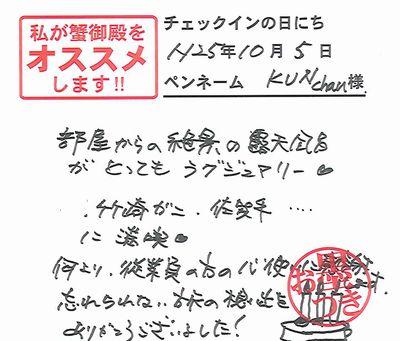 私が蟹御殿を
オススメ
します!!
チェックインの日にち
H25年10月5日
ペンネーム KUNchan様
部屋からの絶景の露天風呂
がとってもラグジュアリー♥
.竹崎がに.佐賀牛....
に満喫♥
何より、従業員の方の心使いに感ます。
忘れられない旅の想い出を
ありがとうございました!